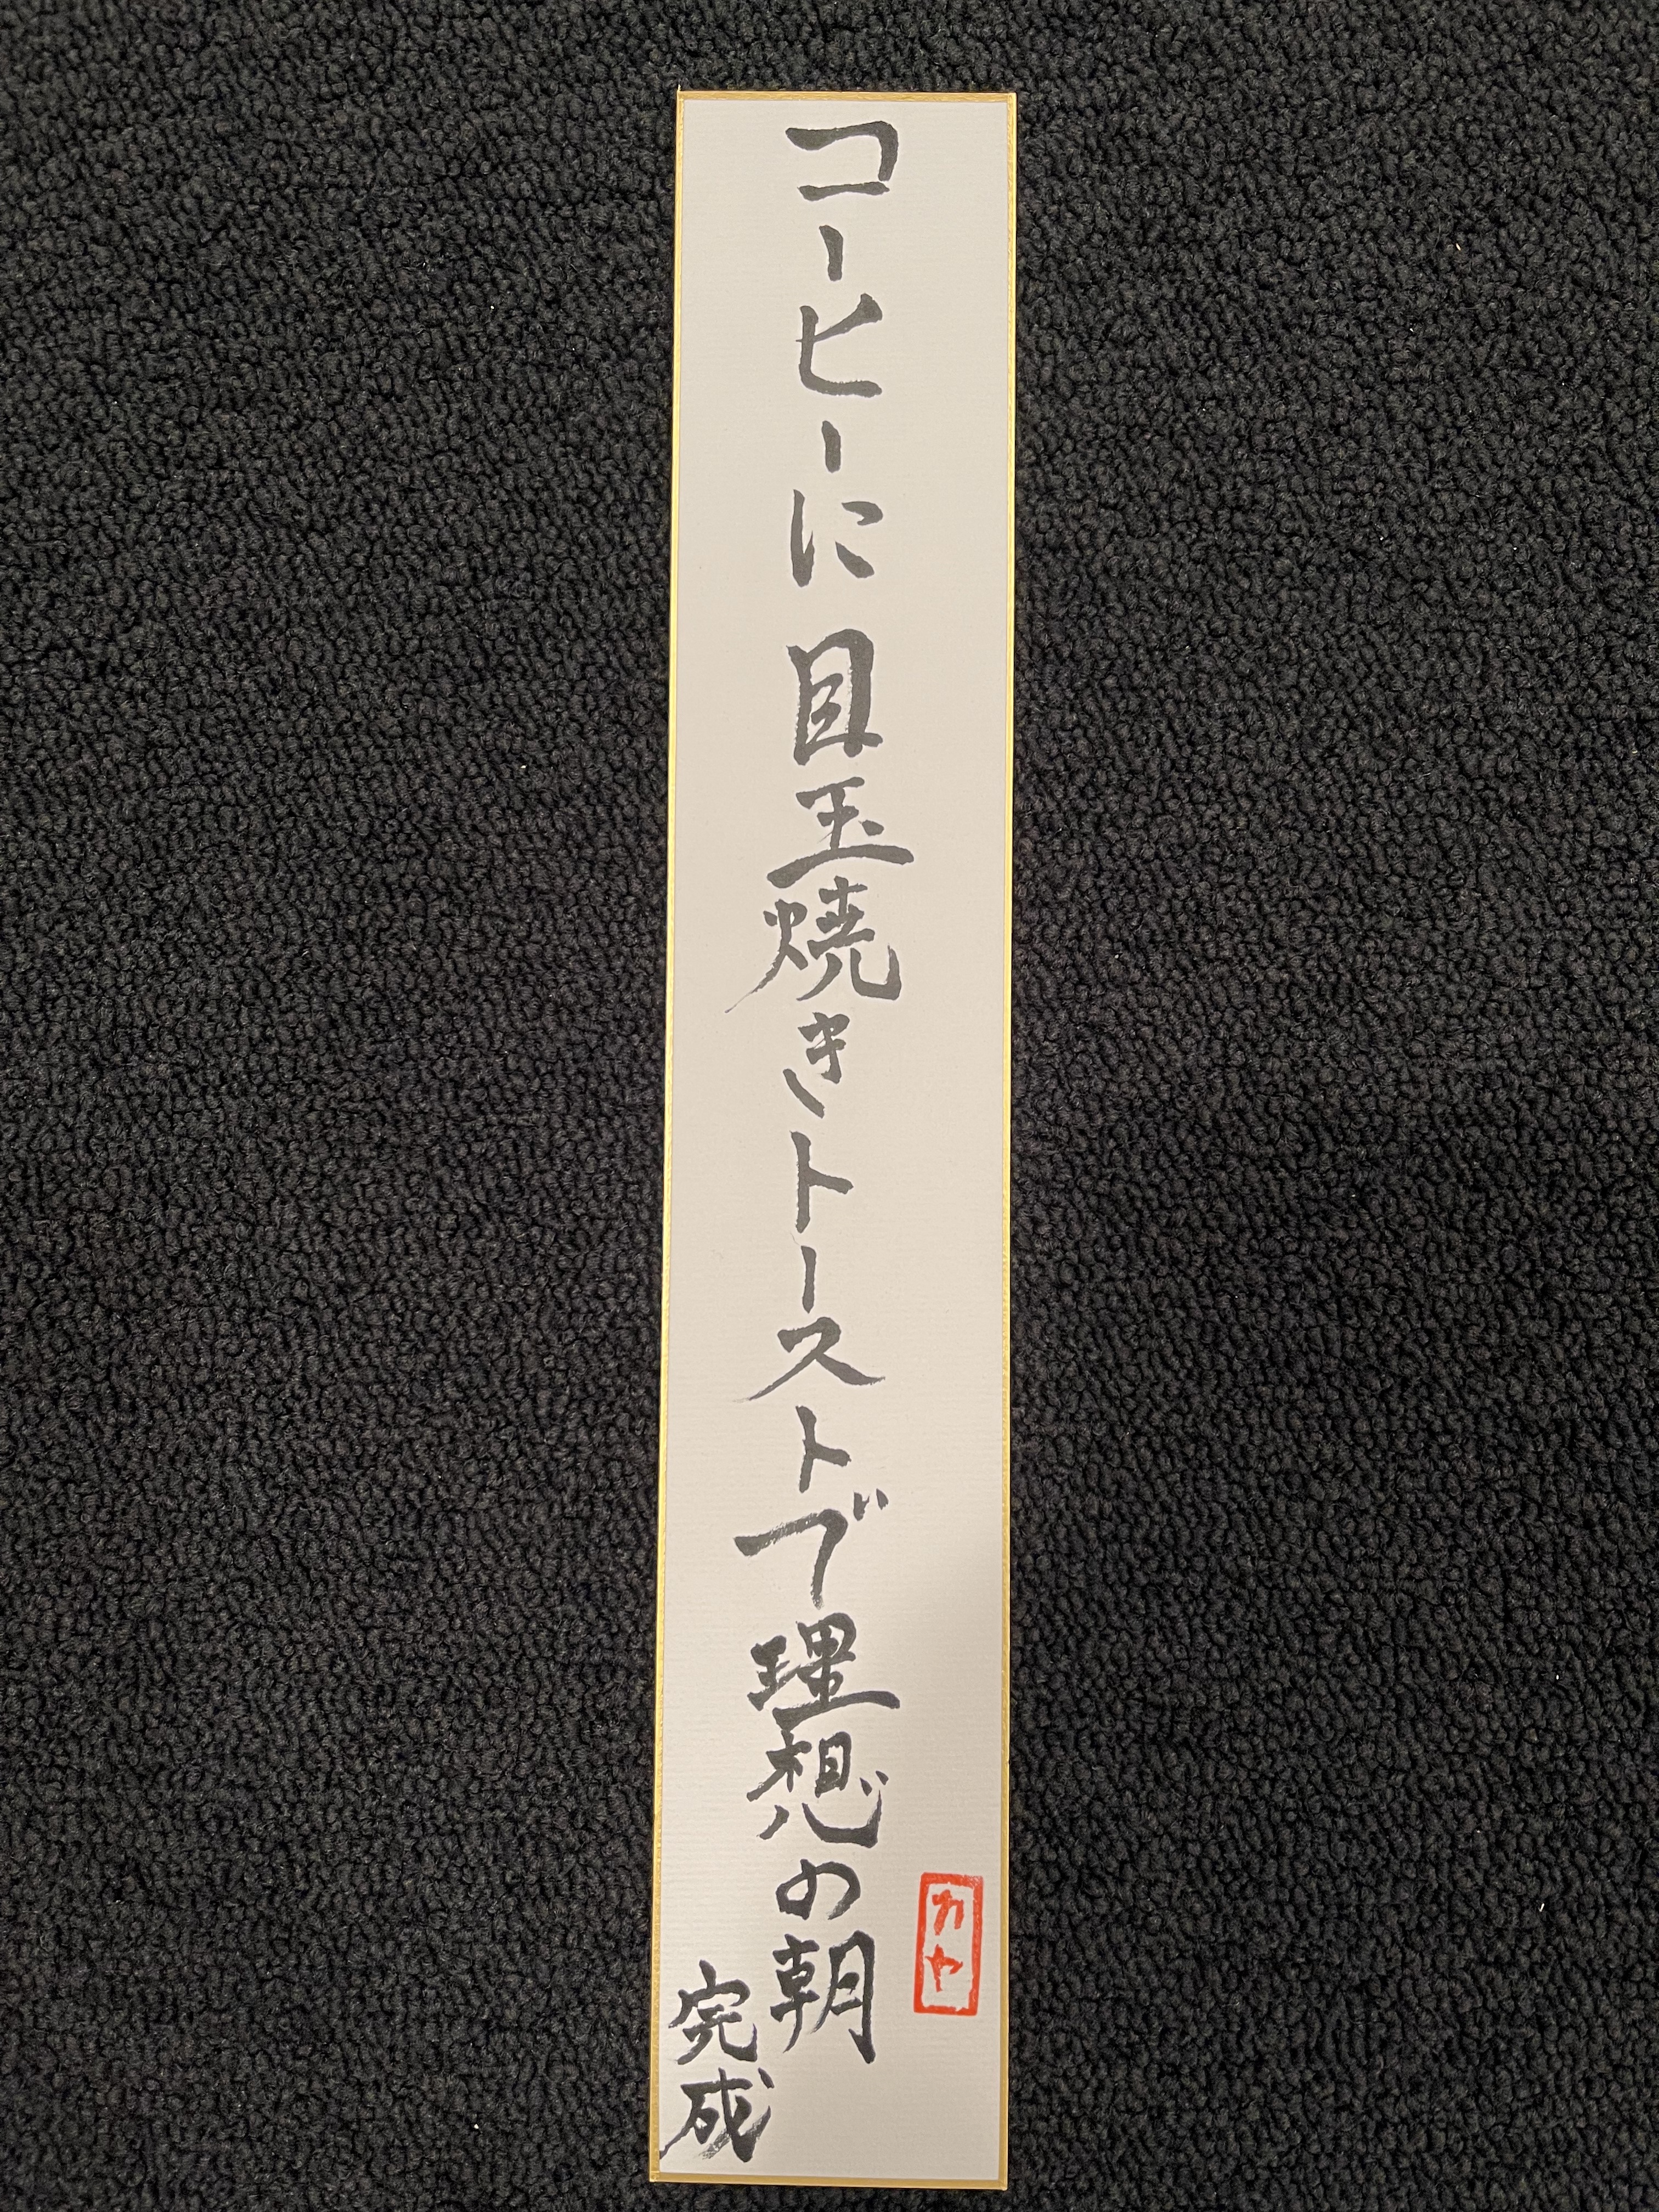 コーヒーに目玉焼きトーストで理想の朝
完成
カヤ